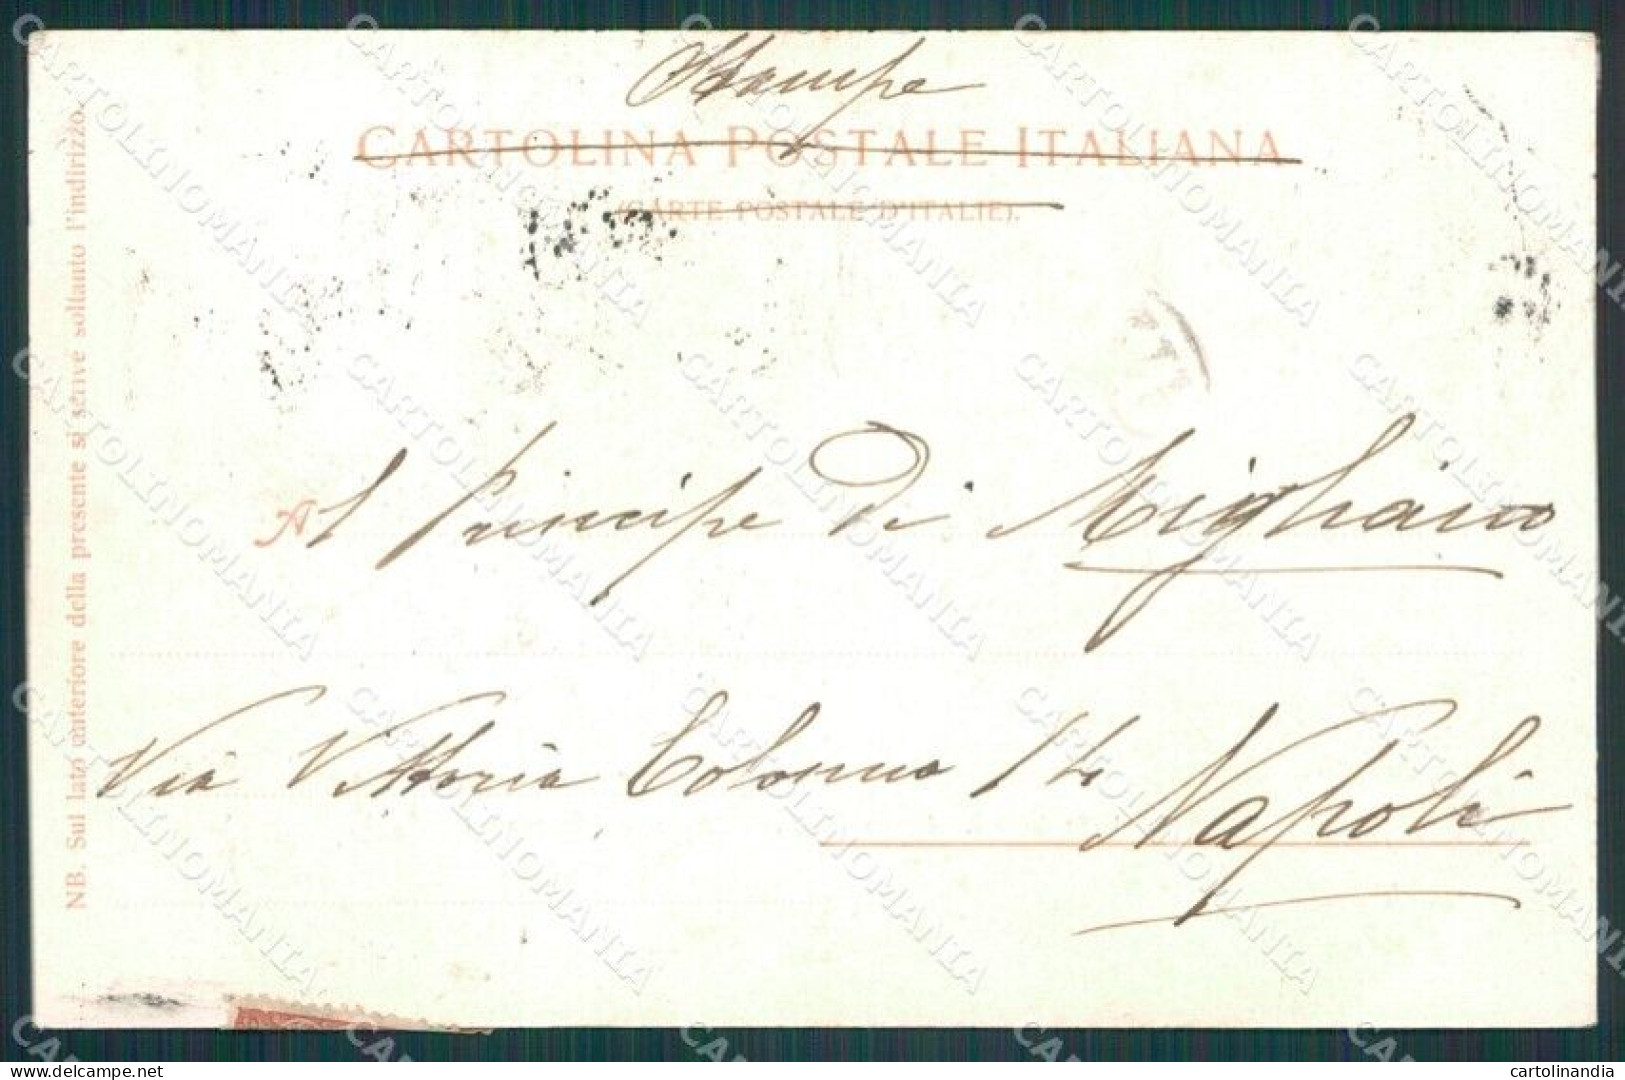 Stampe
CARTOLINA POSTALE ITALIANA
(CARTE POSTALE D'ITALIE).
NB. Sul lato anteriore della presente si scrive soltanto l'indirizzo.
Al Principe di Migliano
Via Vittoria Colonna 14
Napoli
CARTOLINOMANIA
delcampe.net
cartolinandia